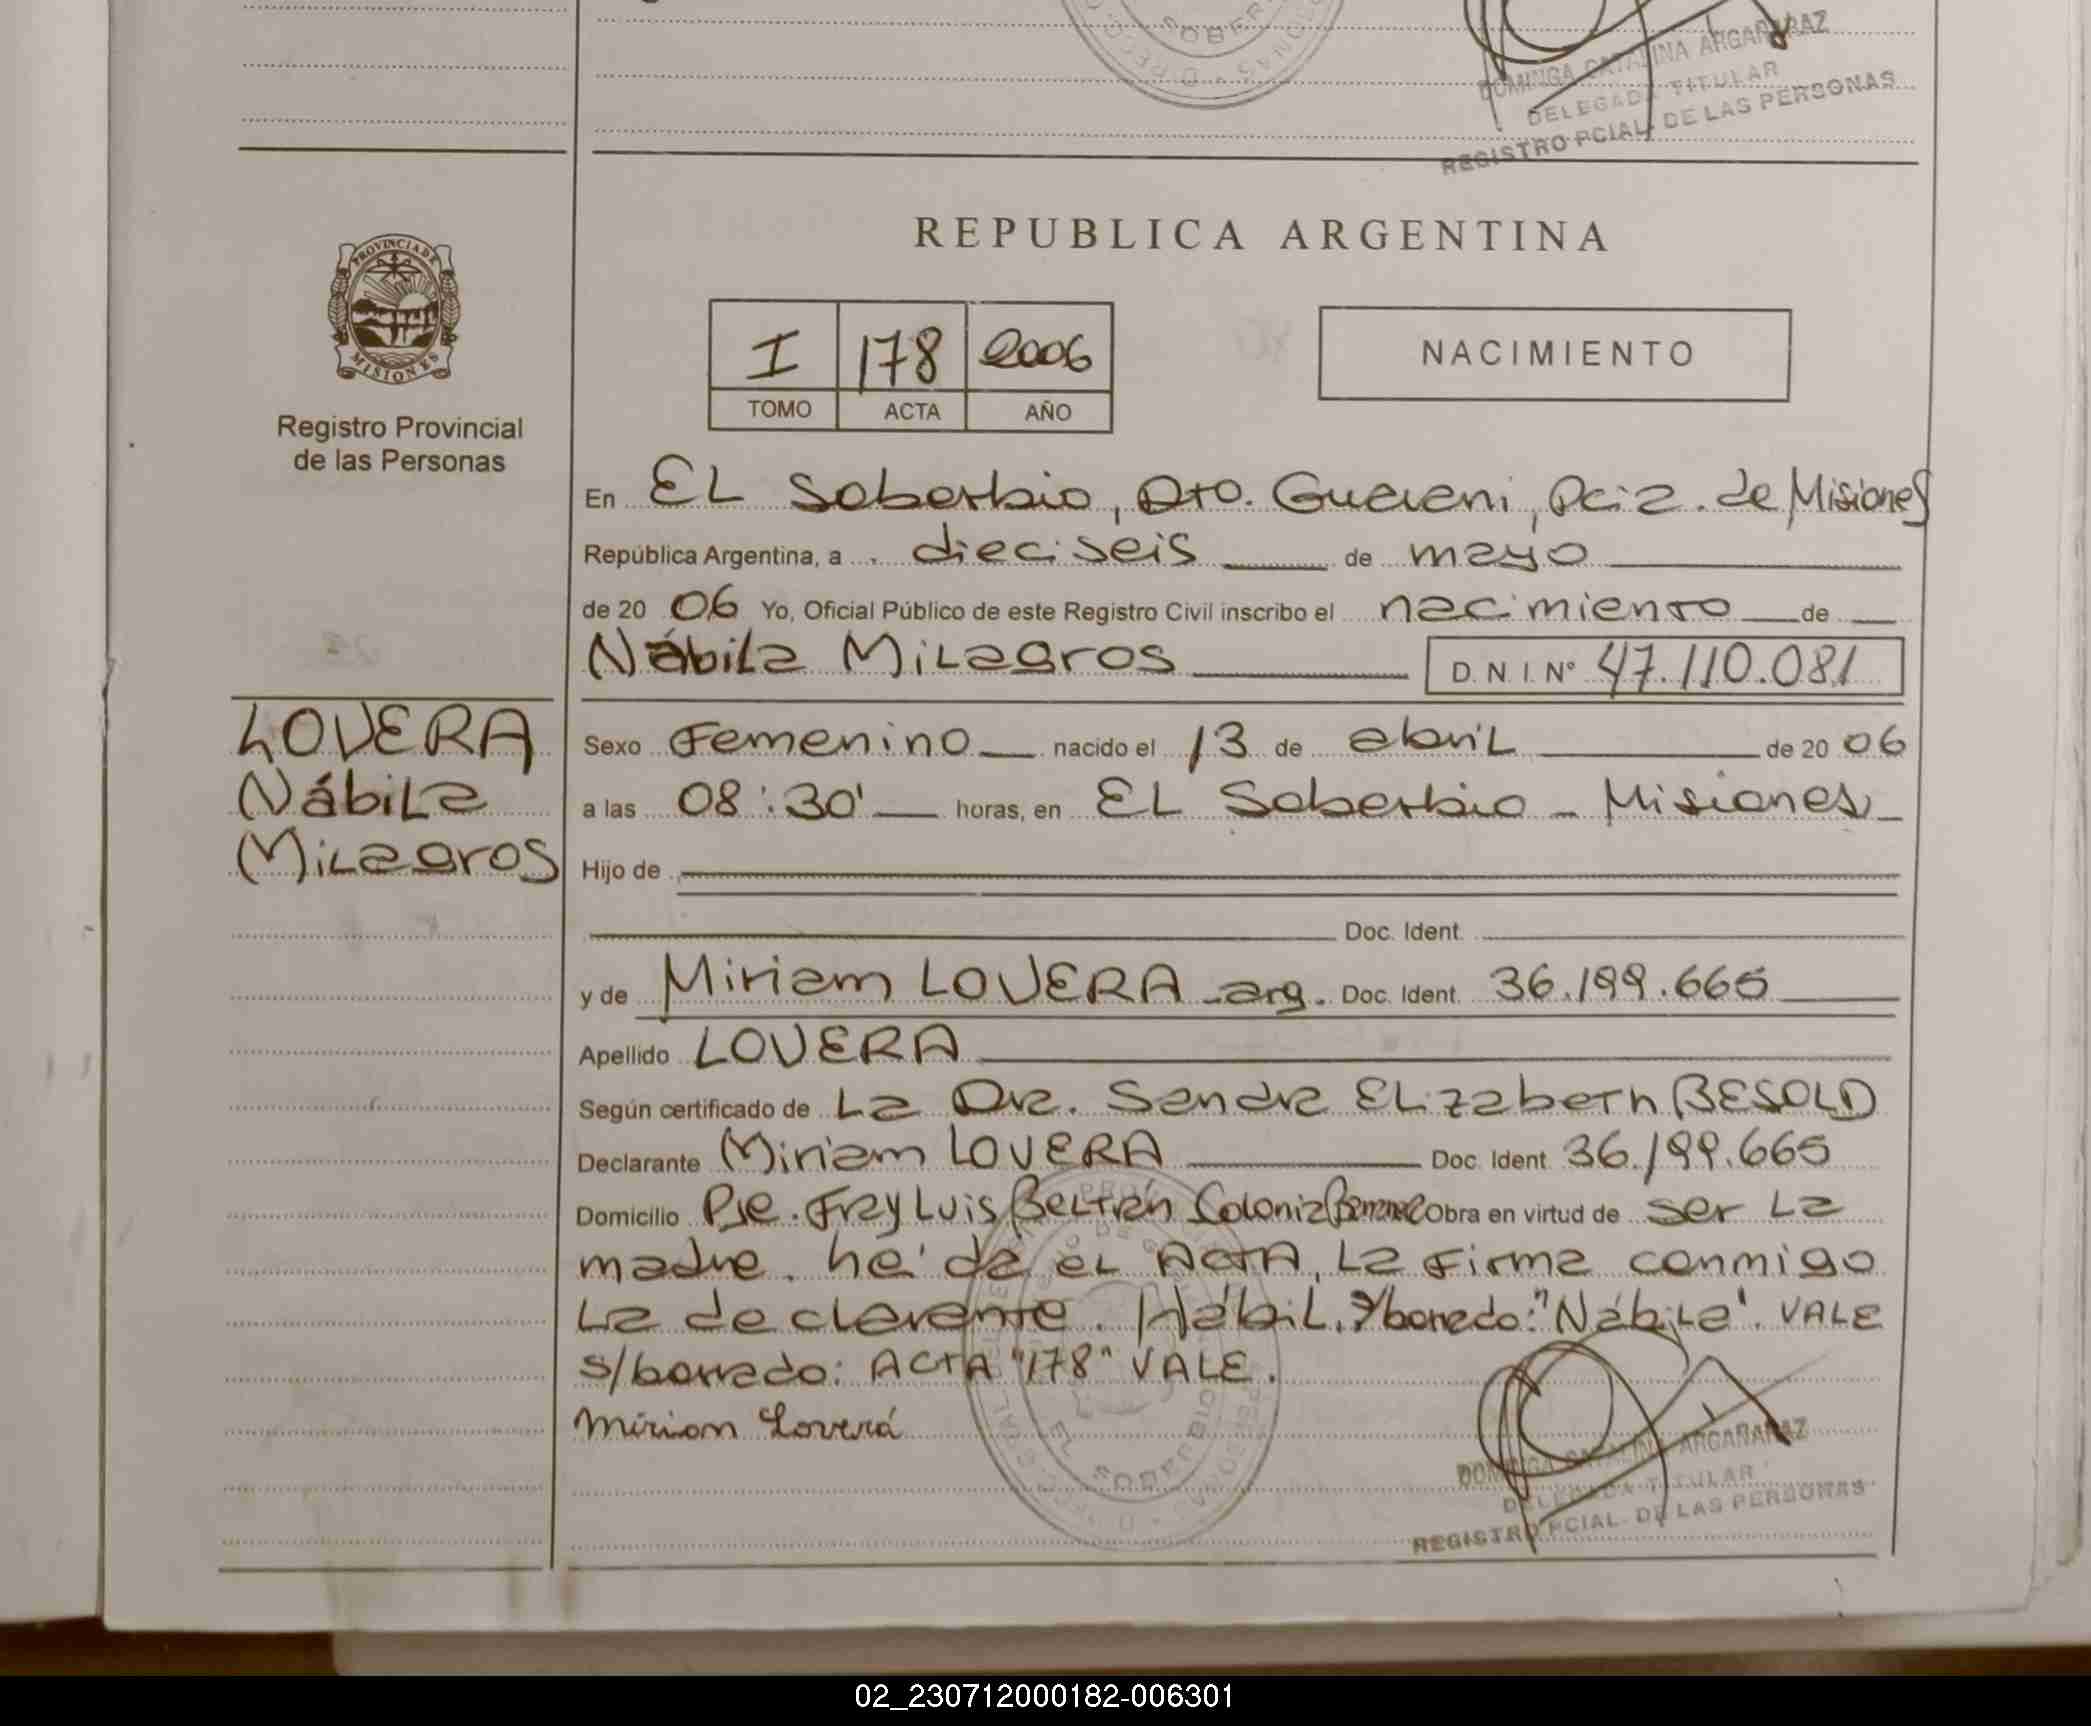 DOMINGA CATALINA ARGAÑARAZ
DELEGADA TITULAR
REGISTRO PCIAL. DE LAS PERSONAS
REPUBLICA ARGENTINA
PROVINCIA DE
MISIONES
Registro Provincial
de las Personas
I 178 2006
TOMO ACTA AÑO
NACIMIENTO
En EL Soberbio, Dto. Guarani, Pcia. de Misiones
República Argentina, a dieciseis de mayo
de 20 06 Yo, Oficial Público de este Registro Civil inscribo el nacimiento de
Nábila Milagros D. N. I. Nº 47.110.081
LOVERA
Nábila
Milagros
Sexo Femenino nacido el 13 de abril de 20 06
a las 08:30' horas, en EL Soberbio - Misiones
Hijo de
Doc. Ident.
y de Miriam LOVERA -arg. Doc. Ident. 36.199.665
Apellido LOVERA
Según certificado de La Dra. Sandra ELizabeth BESOLD
Declarante Miriam LOVERA Doc. Ident. 36.199.665
Domicilio Pje. Fray Luis Beltrán Colonia Obra en virtud de ser La
madre. he da el ACTA, La firma conmigo
La declarante. Hábil. s/borrado: "Nábila". VALE
s/borrado: ACTA "178" VALE.
Mirian Loverá
EL SOBERBIO
DOMINGA CATALINA ARGAÑARAZ
DELEGADA TITULAR
REGISTRO PCIAL. DE LAS PERSONAS
02_230712000182-006301